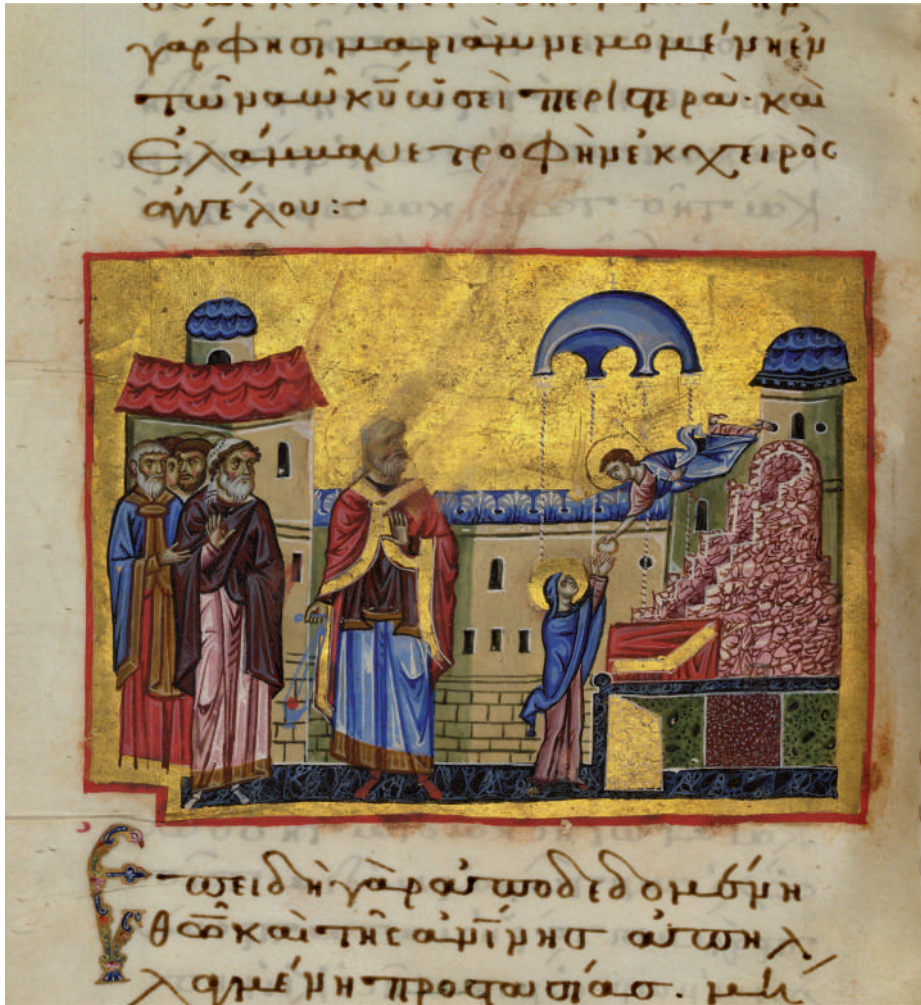 γάρ φησι μαριὰμ νεμομένη ἐν
τῶ ναῶ κ̅υ̅ ὡσεὶ περιστερὰ· καὶ
ἐλάμβανε τροφὴν ἐκ χειρὸς
ἀγγέλου:~
Ἐπειδὴ γὰρ ἀποδεδομένη
θ̅ῶ̅ καὶ τῆς ἀ̅ν̅ίνης ἀπηλ
λαγμένη προστασίας.